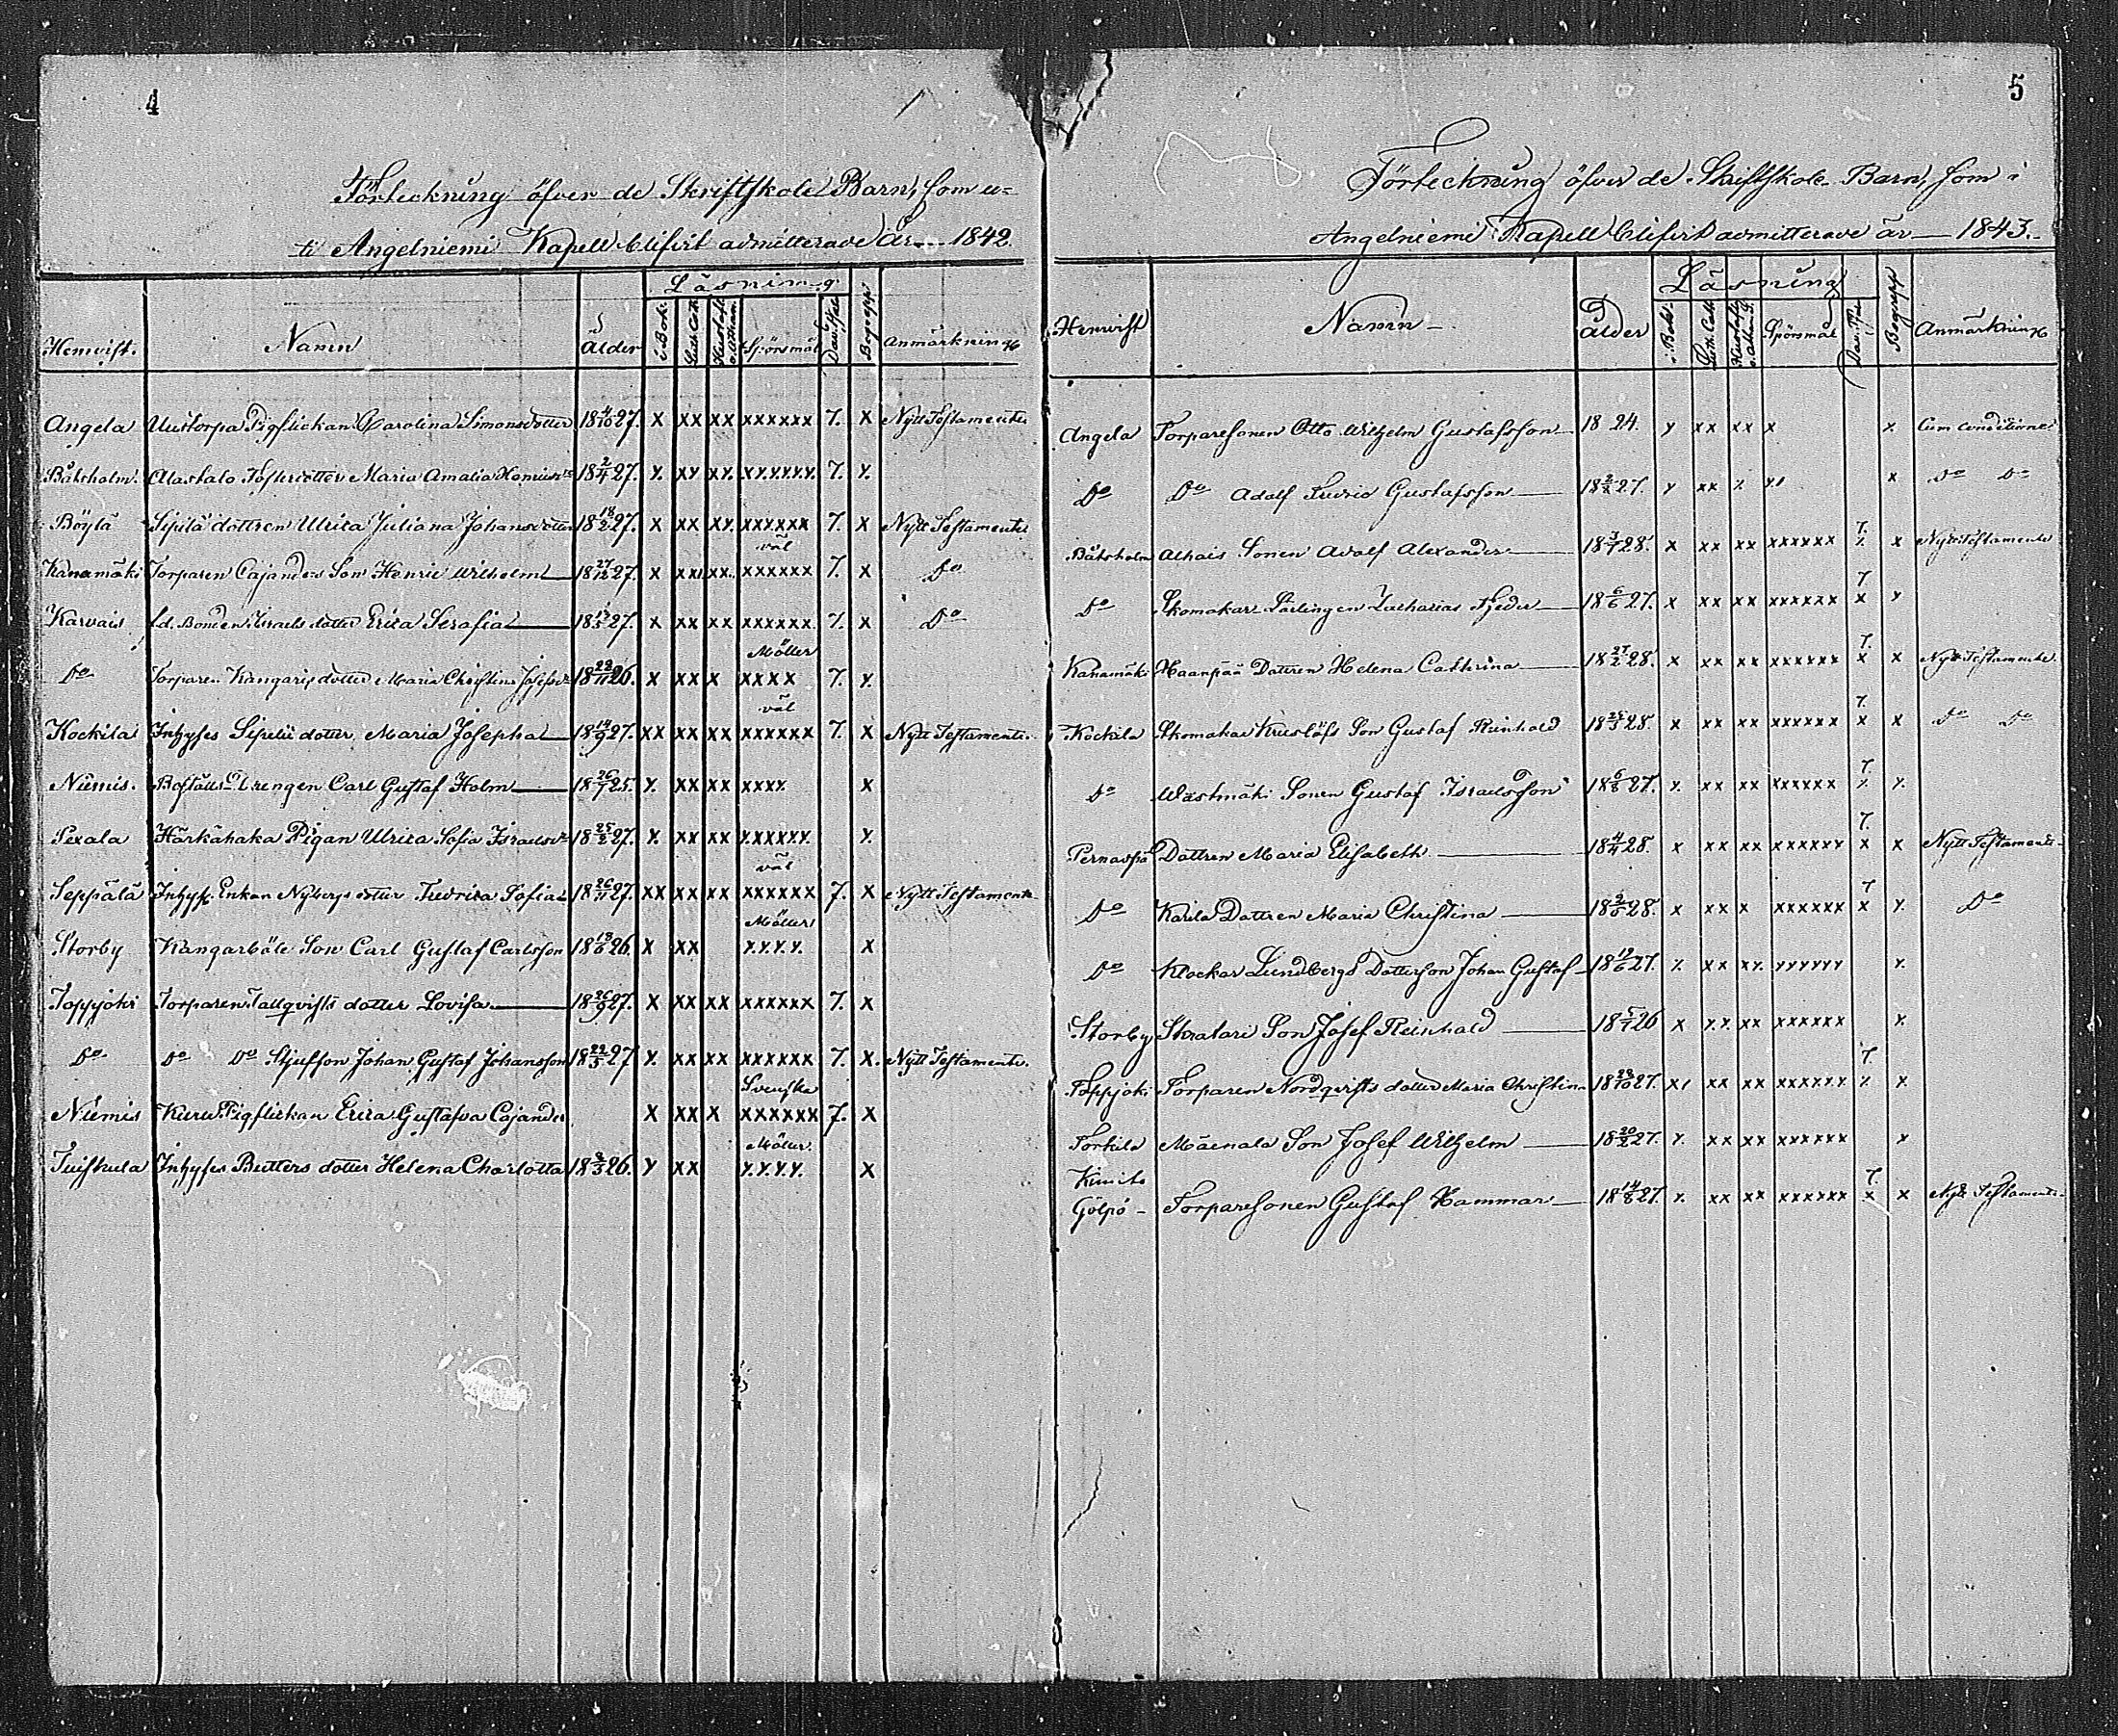 4
Förteckning öfver de Skriftskole Barn, som u=
ti Angelniemi Kapell blifvit admitterade År 1842.
Läsning
Hemvist. Namn Ålder i Bok. Luth. Cath. Spörsmål Dav. Psal. Begrepp Anmärkning
Angela Uustorpa Pigflickan Carolina Simonsdotter 18 4/10 27. x xx xx xxxxxx 7. x Nytt Testamente
Båtsholm. Alastalo Fosterdotter Maria Amalia 18 2/4 27. x. xx xx. xxxxxx. 7. x.
Böylä Sipilä dottren Ulrica Juliana Johansdotter 18 18/2 27. x xx. xx. xxxxxx 7. x Nytt Testamente
väl
Kanamäki Torparen Cajanders Son Henric Wilhelm 18 27/12 27. x xx xx. xxxxxx 7. x Do
Karvais f.d. Bonden Israels dotter Erica Serafia 27. x xx xx xxxxxx. 7. x Do
Möller
Do Torparen Kangaris dotter Maria Christina 18 22/11 26. x xx x xxxx 7. x.
väl
Kockila Inhyses Sipilä dotter Maria Josepha 18 14/9 27. xx xx xx xxxxxx 7. x Nytt Testamente.
Niemis. Boställs Drengen Carl Gustaf Holm 18 26/7 25. x. xx xx xxxx x
Pexala Härkähaka Pigan Ulrica Sofia 18 25/2 27. x. xx xx xxxxxx. x.
väl
Seppälä Inhyss. Enkan Nybergs dotter Fredrika Sofia 18 26/11 27. xx xx xx xxxxxx 7. x Nytt Testamente
Möllers
Storby Kangarböle Son Carl Gustaf Carlsson 18 18/6 26. x xx x.x.x.x. x
Toppjoki Torparen Tallqvists dotter Lovisa 18 26/9 27. x xx xx xxxxxx 7. x
Do Do Do Stjufson Johan Gustaf Johansson 18 22/5 27 x. xx xx xxxxxx 7. x. Nytt Testamente.
Svenska
Niemis Kuru Pigflickan Erica Gustafva Cajander x xx x xxxxxx 7. x
Möller.
Tuiskula Inhyses Butters dotter Helena Charlotta 26. x xx x.x.x.x. x
5
Förteckning öfver de Skriftskole Barn, som i
Angelniemi Kapell blifvit admitterade år 1843.
Läsning
Hemvist Namn Ålder i Bok. Luth. Cath. Spörsmål Dav. Psal. Begrepp Anmärkning
Angela Torparesonen Otto Wilhelm Gustafsson 18 24. x xx xx x x Cum conditione
Do Do Adolf Fredric Gustafsson 27. x xx x x Do Do
Båtsholm Alhais Sonen Adolf Alexander 18 3/7 28. x xx xx xxxxxx 7. x x Nytt Testamente
Do Skomakare Lärlingen Zacharias 18 6/6 27. x xx xx xxxxxx 7. x x
Kanamäki Haanpää Dottren Helena Cathrina 18 27/2 28. x xx xx xxxxxx 7. x x Nytt Testamente.
Kockila Skomakar Son Gustaf Reinhold 18 25/3 28. x xx xx xxxxxx 7. x x Do Do
Do Wästmäki Sonen Gustaf Israelsson 18 6/8 27. x. xx xx xxxxxx 7. x x.
Pernaspä Dottren Maria Elisabeth 18 4/4 28. x xx xx xxxxxx 7. x x Nytt Testamente
Do Karila Dottren Maria Christina 28. x xx x xxxxxx 7 x x. Do
Do Klockar Lundbergs Dotterson Johan Gustaf 18 19/6 27. x xx xx. xxxxxx x.
Storby Skratari Son Josef Reinhold 18 5/7 26 x x.x. xx xxxxxx x.
Toppjoki Torparen Nordqvists dotter Maria Christina 18 23/10 27. xx xx xx xxxxxx 7. x x.
Torkila Mäenala Son Josef Wilhelm 18 20/2 27. x. xx xx xxxxxx x
Kimito
Gölpö - Torparesonen Gustaf Hammar 18 14/8 27. x. xx xx xxxxxx 7. x x Nytt Testamente.